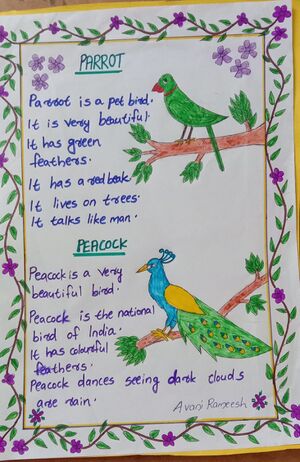 PARROT
Parrot is a pet bird.
It is very beautiful.
It has green
feathers.
It has a red beak.
It lives on trees.
It talks like man.
PEACOCK
Peacock is a very
beautiful bird.
Peacock is the national
bird of India.
It has colourful
feathers.
Peacock dances seeing dark clouds
are rain.
Avani Rameesh